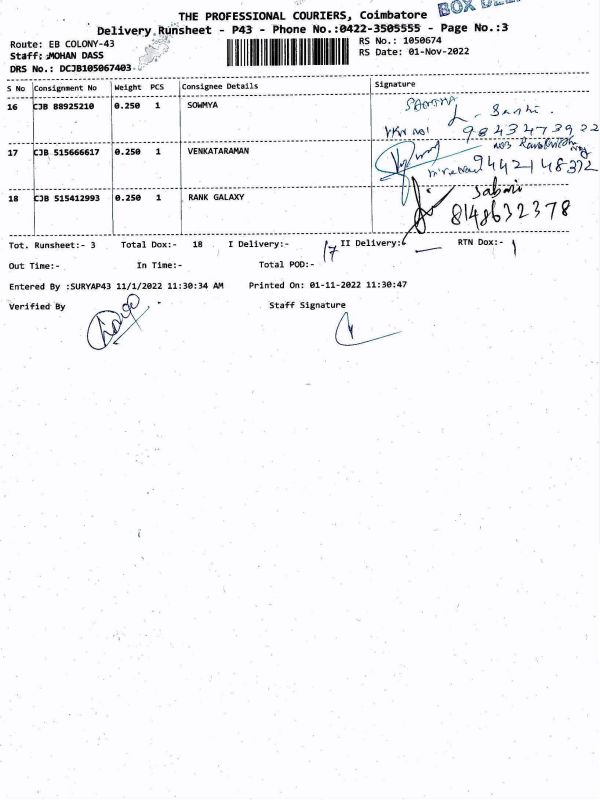 THE PROFESSIONAL COURIERS, Coimbatore
Delivery Runsheet - P43 - Phone No.:0422-3505555 - Page No.:3
Route: EB COLONY-43 RS No.: 1050674
Staff: MOHAN DASS RS Date: 01-Nov-2022
DRS No.: DCJB105067403
S No Consignment No Weight PCS Consignee Details Signature
16 CJB 88925210 0.250 1 SOWMYA
9843473922
17 CJB 515666617 0.250 1 VENKATARAMAN
9442148372
18 CJB 515412993 0.250 1 RANK GALAXY
8148632378
Tot. Runsheet:- 3 Total Dox:- 18 I Delivery:- 17 II Delivery:- RTN Dox:- 1
Out Time:- In Time:- Total POD:-
Entered By :SURYAP43 11/1/2022 11:30:34 AM Printed On: 01-11-2022 11:30:47
Verified By Staff Signature